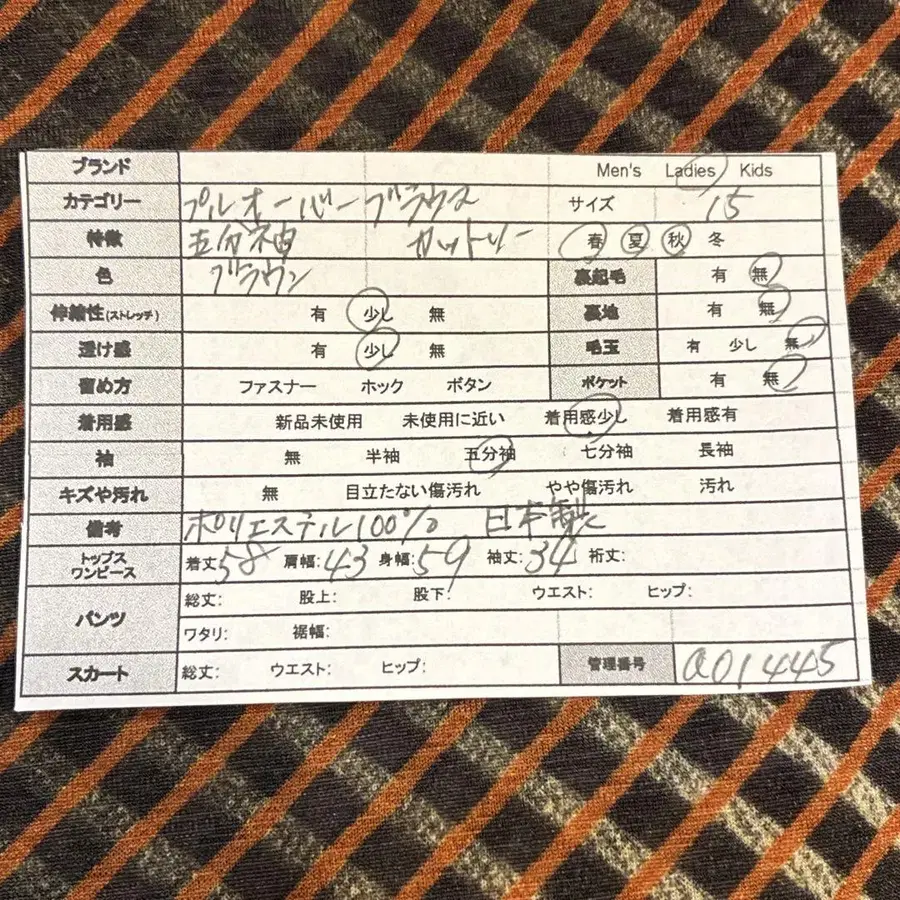 ブランド Men's Ladies Kids
カテゴリー プルオーバーブラウス サイズ 15
特徴 五分袖 カットソー 春 夏 秋 冬
色 ブラウン 裏起毛 有 無
伸縮性(ストレッチ) 有 少し 無 裏地 有 無
透け感 有 少し 無 毛玉 有 少し 無
留め方 ファスナー ホック ボタン ポケット 有 無
着用感 新品未使用 未使用に近い 着用感少し 着用感有
袖 無 半袖 五分袖 七分袖 長袖
キズや汚れ 無 目立たない傷汚れ やや傷汚れ 汚れ
備考 ポリエステル100% 日本製
トップス ワンピース 着丈:58 肩幅:43 身幅:59 袖丈:34 裄丈:
パンツ 総丈: 股上: 股下: ウエスト: ヒップ:
ワタリ: 裾幅:
スカート 総丈: ウエスト: ヒップ: 管理番号 a01445